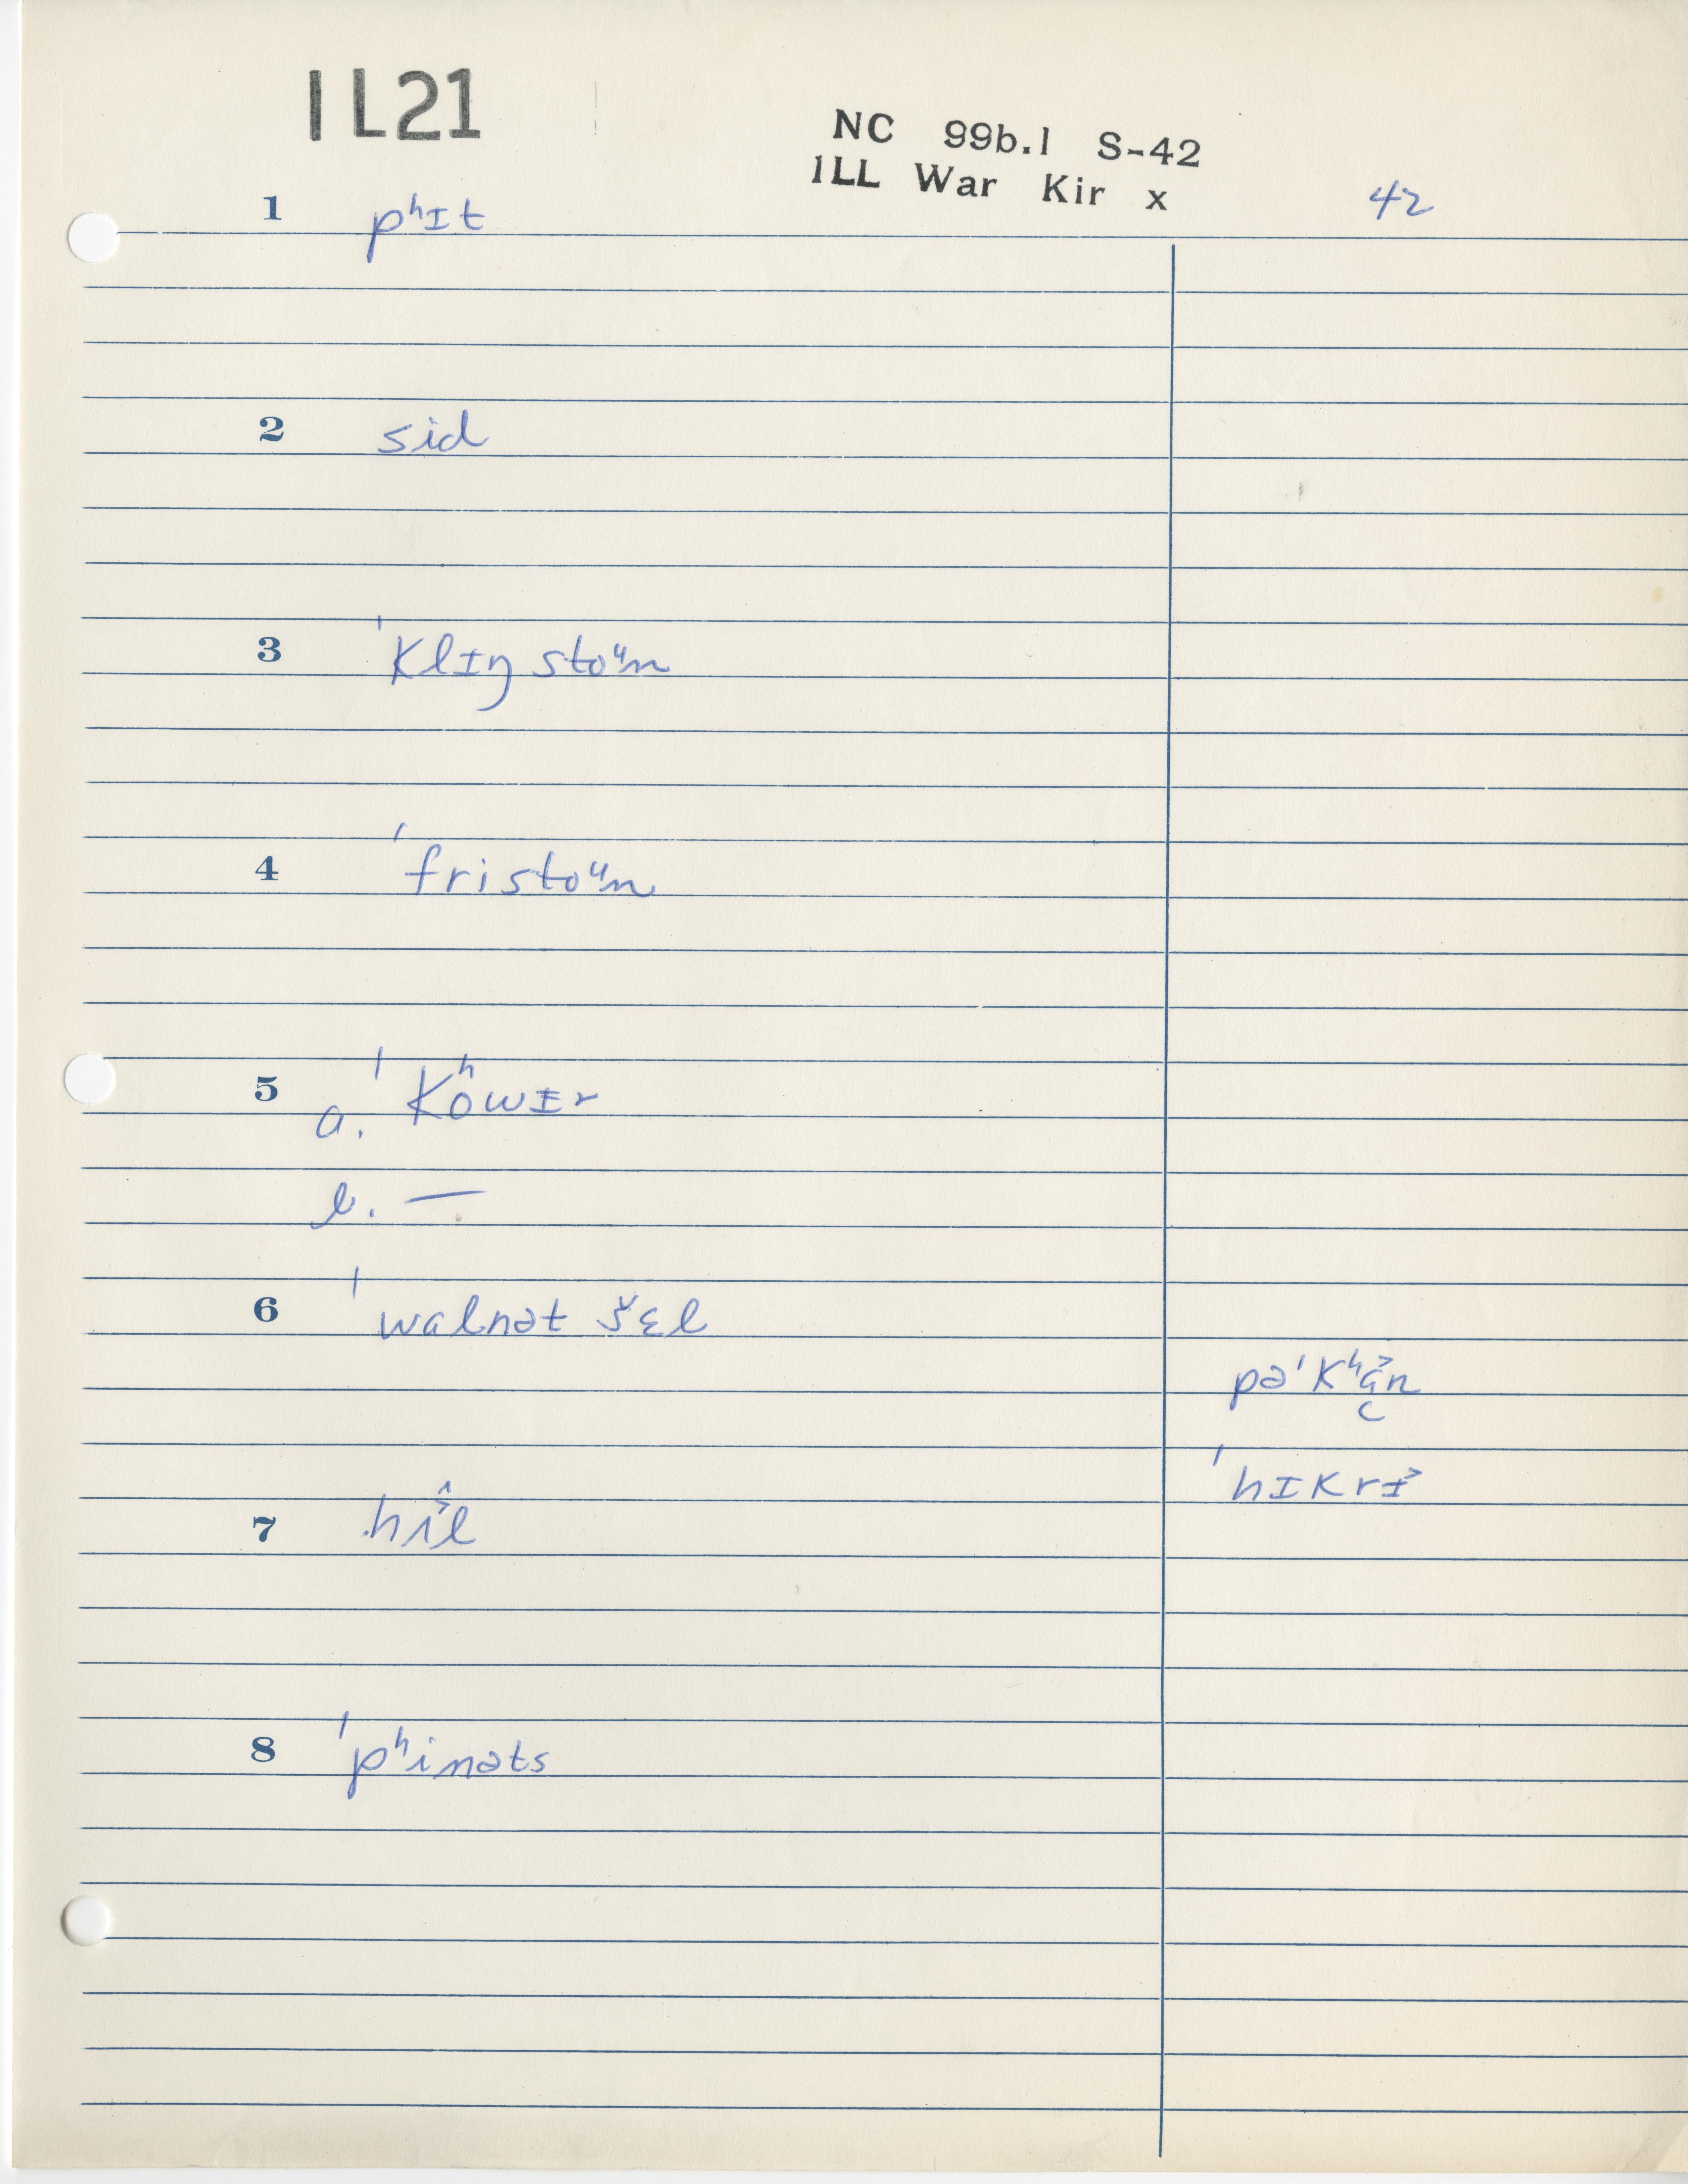 IL21
NC 99b.1 S-42
ILL War Kir x
42
1 pʰɪt
2 sid
3 ˈklɪŋ stoᵘn
4 ˈfristoᵘn
5 a. ˈkʰowɪr
b. —
6 ˈwalnət šɛl
pəˈkʰɑn
ˈhɪkrɪ
7 hʌl
8 ˈpʰinəts